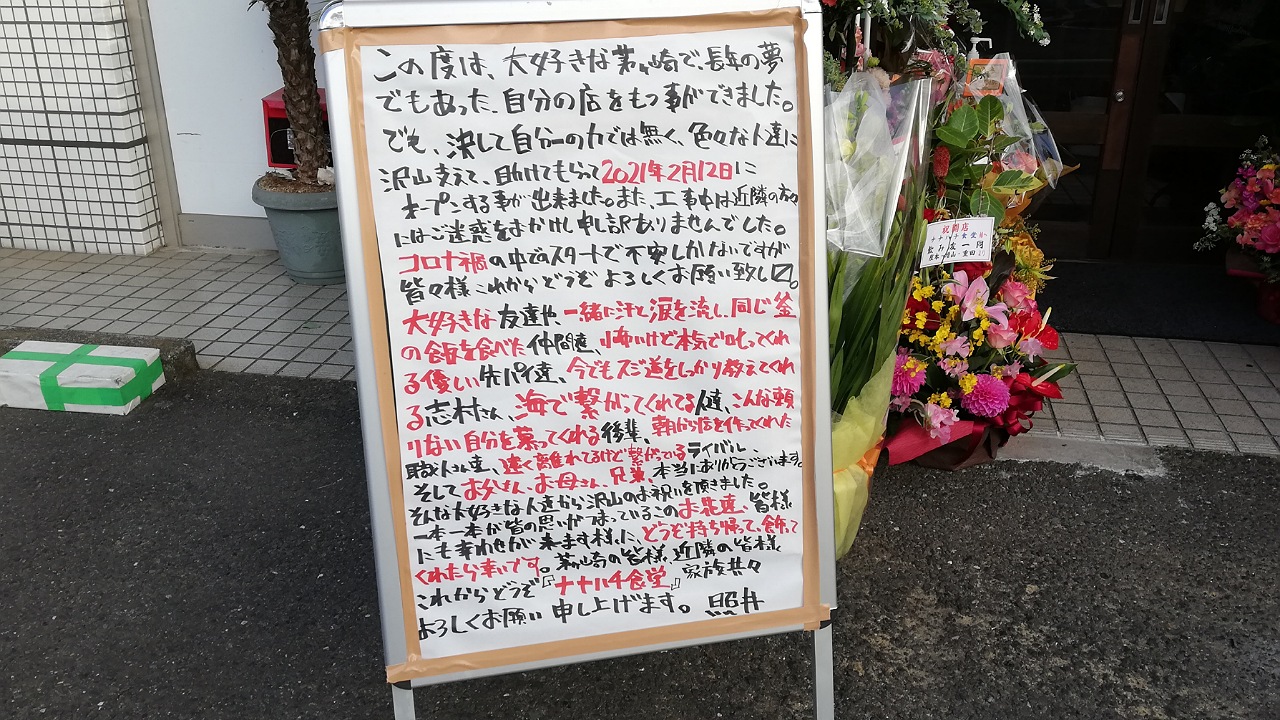 この度は、大好きな茅ヶ崎で、長年の夢
でもあった、自分の店をもつ事ができました。
でも、決して自分一の力では無く、色々な人達に
沢山支えて、助けてもらって2021年2月12日に
オープンする事が出来ました。また、工事中は近隣の方々
にはご迷惑をおかけし申し訳ありませんでした。
コロナ禍の中でのスタートで不安しかないですが
皆々様これからどうぞよろしくお願い致し〼。
大好きな友達や、一緒に汗と涙を流し、同じ釜
の飯を食べた仲間達、怖いけど本気で叱ってくれ
る優しい先パイ達、今でもスジ道をしっかり教えてくれ
る志村さん、海で繋がってくれてる人達、こんな頼
りない自分を慕ってくれる後輩、朝から店を作ってくれた
職人さん達、遠く離れてるけど繋がっているライバル、
そしてお父さん、お母さん、兄弟、本当にありがとうございます。
そんな大好きな人達から沢山のお祝いを頂きました。
一本一本が皆の思いがつまっているこのお花達、皆様
にも幸わせが来ます様に、どうぞ持ち帰って、飾って
くれたら幸いです。茅ヶ崎の皆様、近隣の皆様
これからどうぞ『ナナハチ食堂』家族共々
よろしくお願い申し上げます。照井
祝開店
一同